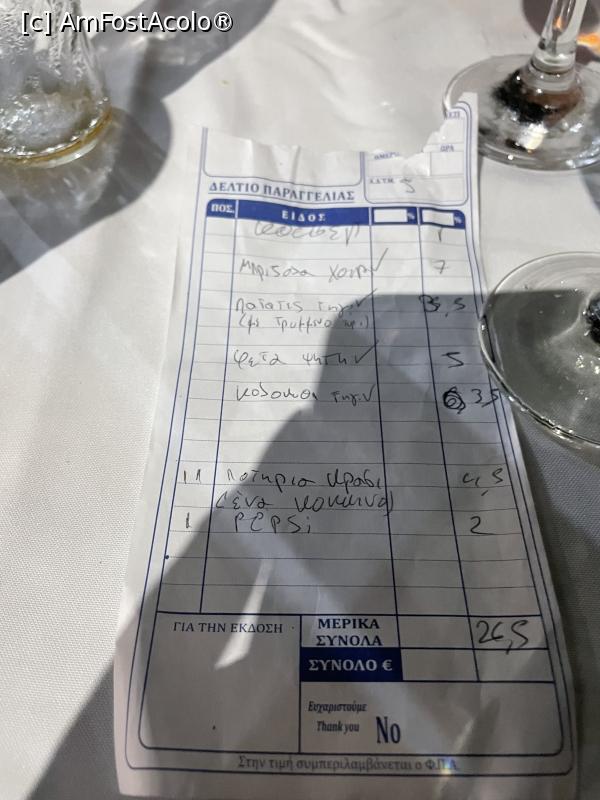 [c] AmFostAcolo®
ΩΡΑ
5
ΔΕΛΤΙΟ ΠΑΡΑΓΓΕΛΙΑΣ
ΠΟΣ. ΕΙΔΟΣ % %
1
Μπριζολα χοιρ 7
Πατατες τηγ. 5
(με τριμμενο τυρι)
φετα ψητη 5
κολοκυθι τηγ. 3,5
11 Ποτηρια κρασι 4,5
(ένα κοκκινο)
1 PEPSi 2
ΓΙΑ ΤΗΝ ΕΚΔΟΣΗ ΜΕΡΙΚΑ
ΣΥΝΟΛΑ 26,5
ΣΥΝΟΛΟ €
Ευχαριστούμε
Thank you No
Στην τιμή συμπεριλαμβάνεται ο Φ.Π.Α.